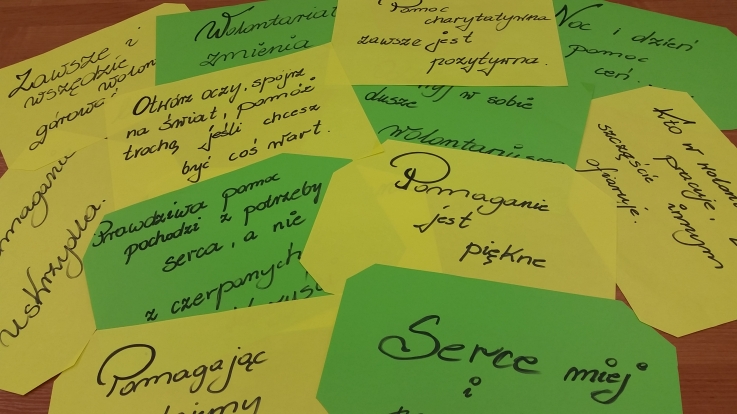 Zawsze i
wszędzie
górować
Wolontariat
zmienia
Pomoc
charytatywna
zawsze jest
pozytywna.
Noc i dzień
pomoc
ceń.
Otwórz oczy, spójrz
na świat, pomóż
trochę, jeśli chcesz
być coś wart.
w sobie
duszę
Kto w
pracuje,
innym
szczęście
ofiaruje.
uskrzydla.
Prawdziwa pomoc
pochodzi z potrzeby
serca, a nie
z czerpanych
Pomaganie
jest
piękne
Pomagając
Serce miej
i